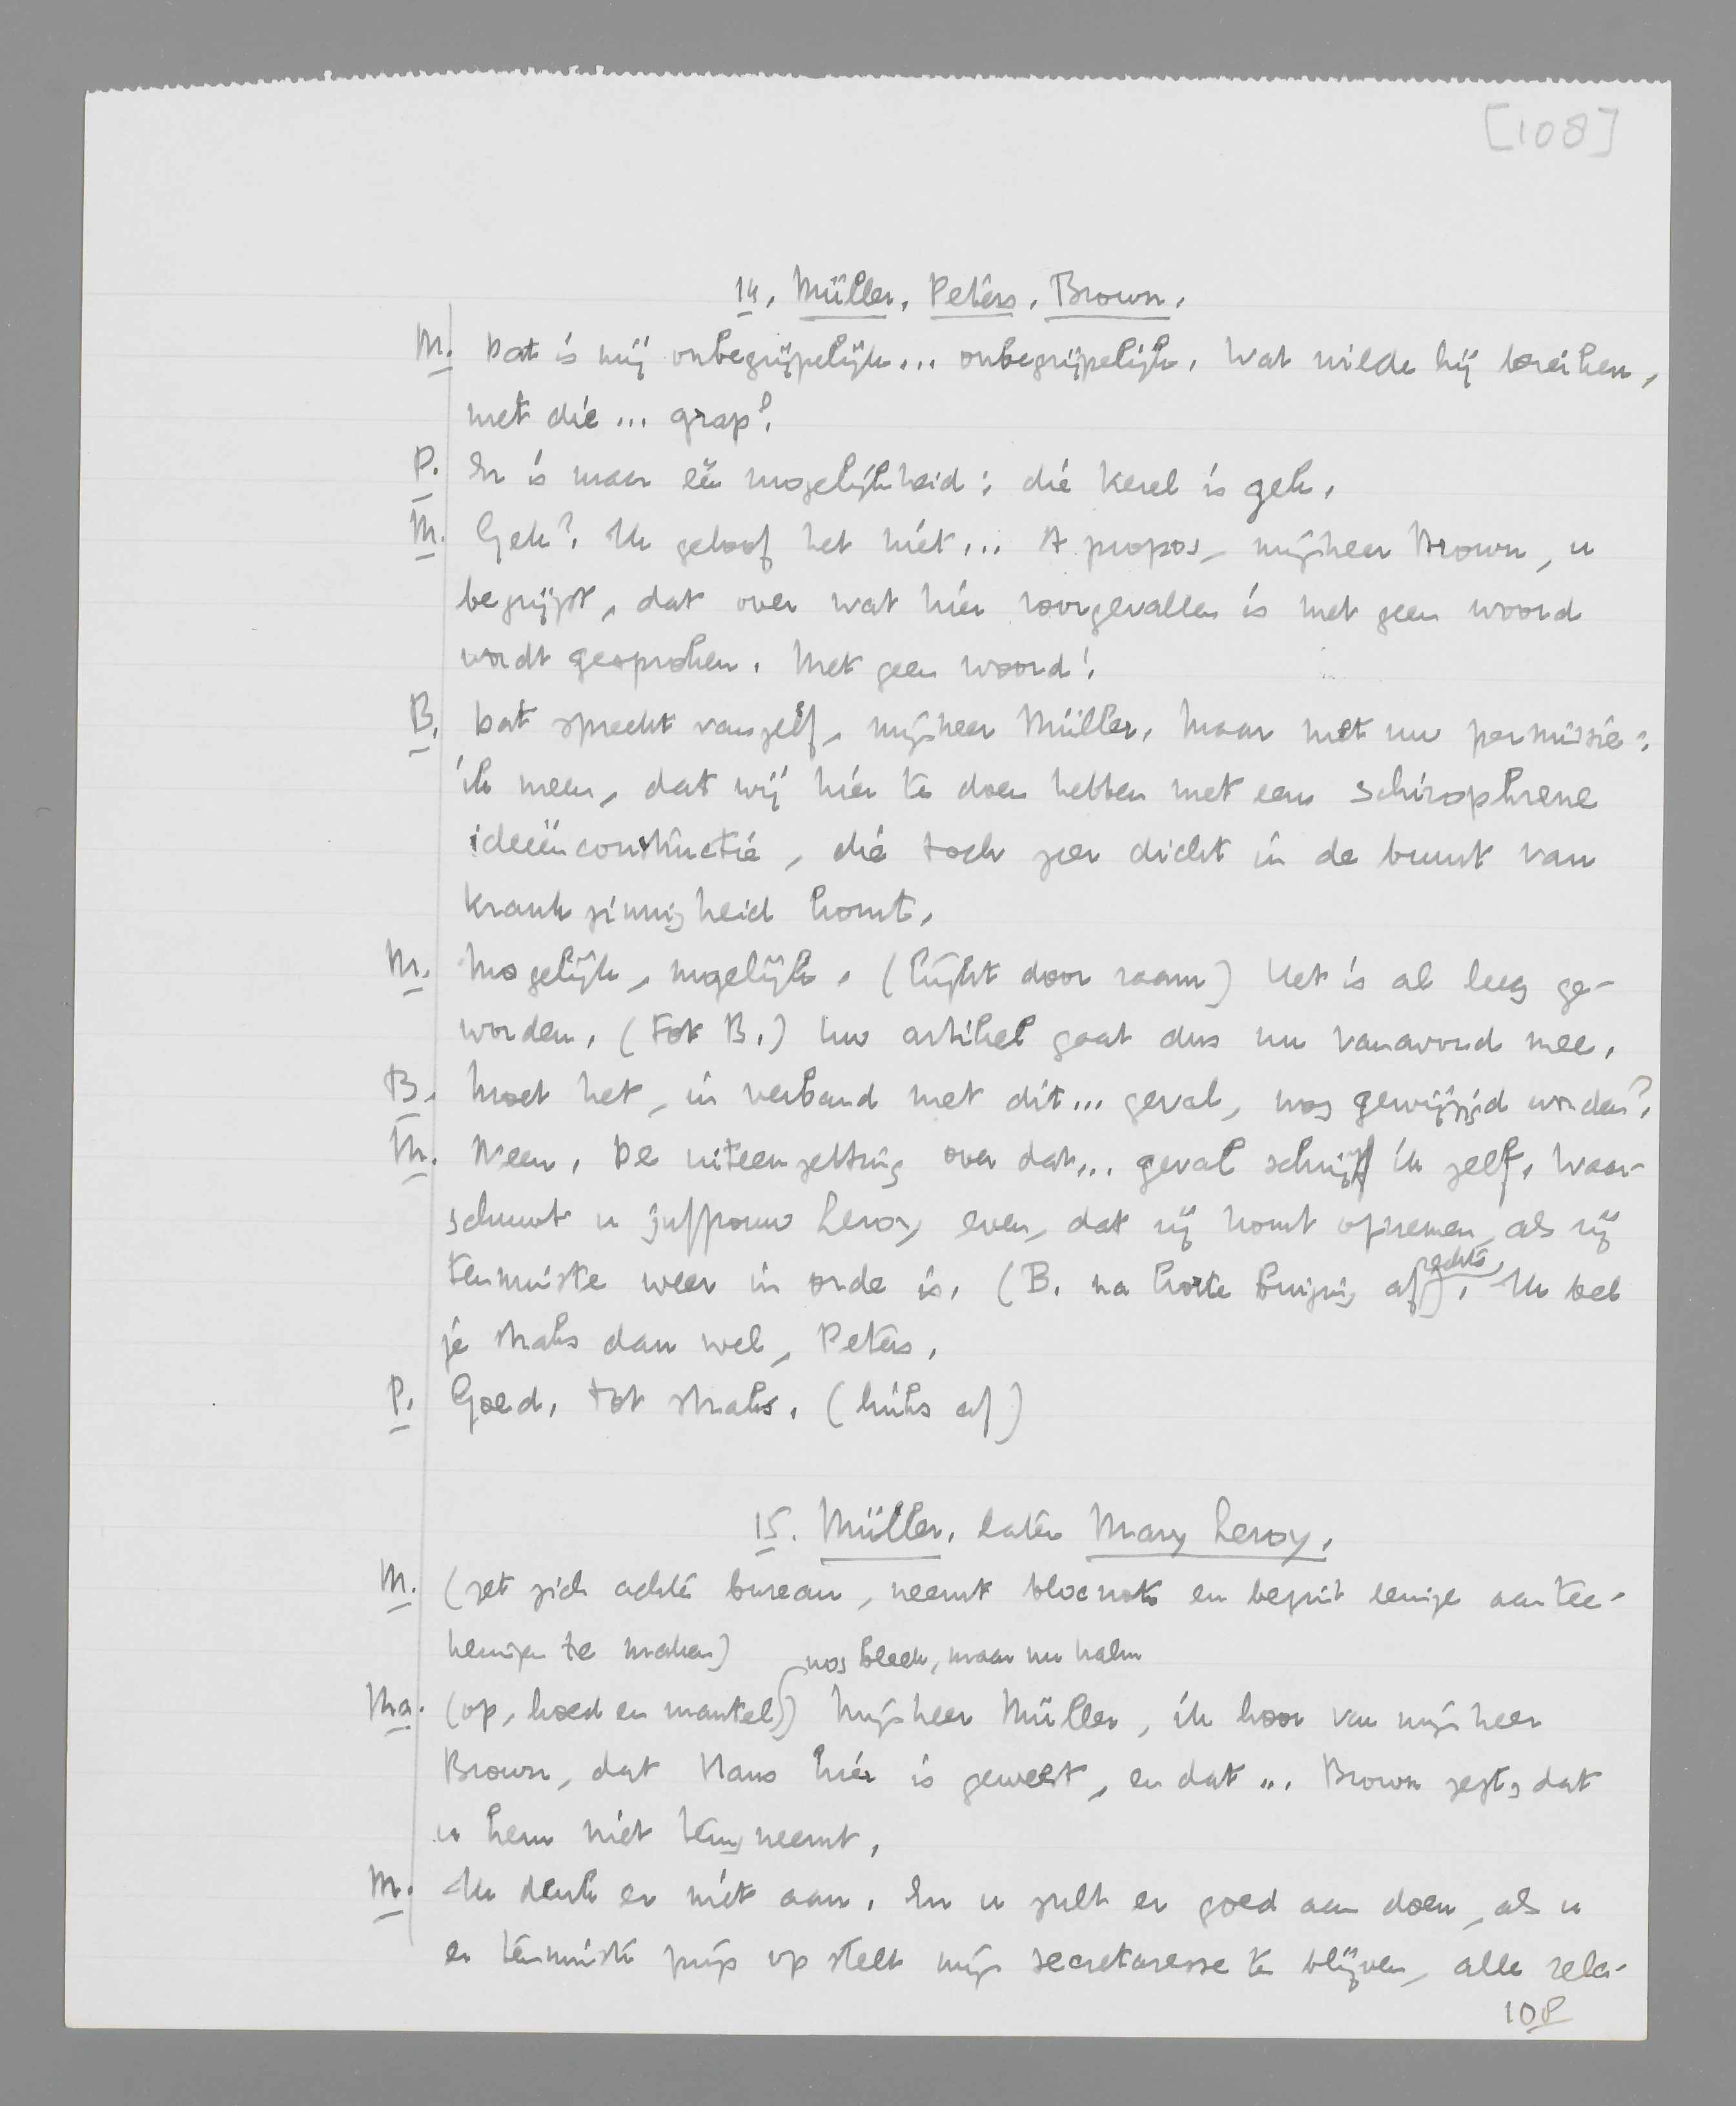 [108]
14. Müller, Peters, Brown.
M. Dat is mij onbegrijpelijk... onbegrijpelijk. Wat wilde hij bereiken,
met die... grap?
P. Er is maar één mogelijkheid: die kerel is gek.
M. Gek? Ik geloof het niet... A propos, mijnheer Brown, u
begrijpt, dat over wat hier voorgevallen is met geen woord
wordt gesproken. Met geen woord!
B. Dat spreekt vanzelf, mijnheer Müller. Maar met uw permissie:
ik meen, dat wij hier te doen hebben met een schizophrene
ideeënconstructie, die toch zeer dicht in de buurt van
krankzinnigheid komt.
M. Mogelijk, mogelijk. (kijkt door raam) Het is al leeg ge-
worden. (tot B.) Uw artikel gaat dus nu vanavond mee.
B. Moet het, in verband met dit... geval, nog gewijzigd worden?
M. Neen. De uiteenzetting over dat... geval schrijf ik zelf. Waar-
schuwt u juffrouw Leroy even, dat zij komt opnemen, als zij
tenminste weer in orde is. (B. na korte buiging af rechts). Ik bel
je straks dan wel, Peters.
P. Goed, tot straks. (links af)
15. Müller, later Mary Leroy.
M. (zet zich achter bureau, neemt blocnote en begint eenige aantee-
keningen te maken)
nog bleek, maar nu kalm
Ma. (op, hoed en mantel) Mijnheer Müller, ik hoor van mijnheer
Brown, dat Hans hier is geweest, en dat... Brown zegt, dat
u hem niet terugneemt.
M. Ik denk er niet aan. En u zult er goed aan doen, als u
er tenminste prijs op stelt mijn secretaresse te blijven, alle rela-
108